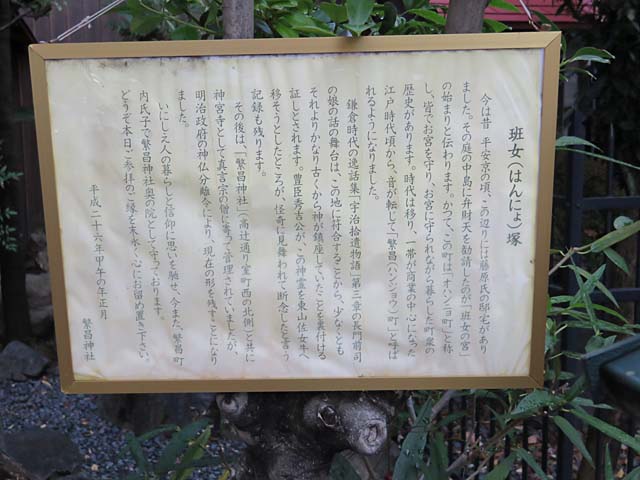 班女(はんにょ)塚
今は昔 平安京の頃、この辺りには藤原氏の邸宅があり
ました。その庭の中島に弁財天を勧請したのが「班女の宮」
の始まりと伝わります。かつて、この町は「オハンニョ町」と称
し、皆でお宮を守り、お宮に守られながら暮らした町衆の
歴史があります。時代は移り、一帯が商業の中心になった
江戸時代頃から、音が転じて「繁昌(ハンジョウ)町」と呼ば
れるようになりました。
鎌倉時代の逸話集「宇治拾遺物語」第三章の長門前司
の娘の話の舞台は、この地に符合することから、少なくとも
それよりかなり古くから神が鎮座していたことを裏付ける
証しとされます。豊臣秀吉公が、この神霊を東山佐女牛へ
移そうとしたところが、怪奇に見舞われて断念したと言う
記録も残ります。
その後は、「繁昌神社」(高辻通り室町西の北側)と共に
神宮寺として真言宗の僧に寄って管理されていましたが、
明治政府の神仏分離令により、現在の形を残すことになり
ました。
いにしえ人の暮らしと信仰に思いを馳せ、今また、繁昌町
内氏子で繁昌神社奥の院として守っております。
どうぞ本日ご参拝のご縁を末永く心にお留め置き下さい。
平成二十六年甲午の年正月
繁昌神社